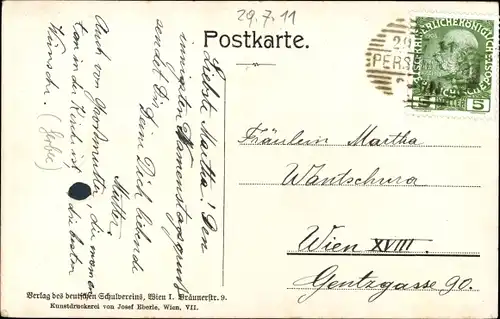 29.7.11
Postkarte.
29
PERS
KAIS. KÖNIGL.
5
5
Liebste Martha! Den
innigsten Namenstagsgruß
sendet Dir
Deine Dich liebende
Mutter.
Auch von Großmutter, die momen-
tan in der Kirche ist, die besten
Wünsche.
Fräulein Martha
Wantschura
Wien XVIII.
Gentzgasse 90.
Verlag des deutschen Schulvereins, Wien I. Bräunerstr. 9.
Kunstdruckerei von Josef Eberle, Wien, VII.